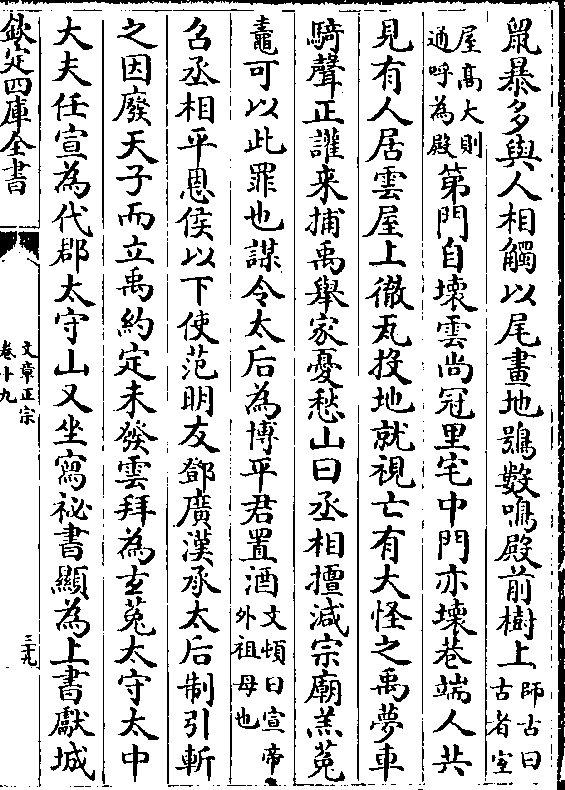 鼠暴多與人相觸以尾畫地鴞數鳴殿前樹上師古曰古者室
屋高大則通呼為殿第門自壞雲尚冠里宅中門亦壞巷端人共
見有人居雲屋上徹瓦投地就視亡有大怪之禹夢車
騎聲正讙来捕禹舉家憂愁山曰丞相擅減宗廟羔菟
鼃可以此罪也謀令太后為博平君置酒文頴曰宣帝外祖母也
召丞相平恩侯以下使范明友鄧廣漢承太后制引斬
之因廢天子而立禹約定未發雲拜為𤣥菟太守太中
大夫任宣為代郡太守山又坐寫祕書顯為上書獻城
欽定四庫全書
文章正宗
卷十九
三九